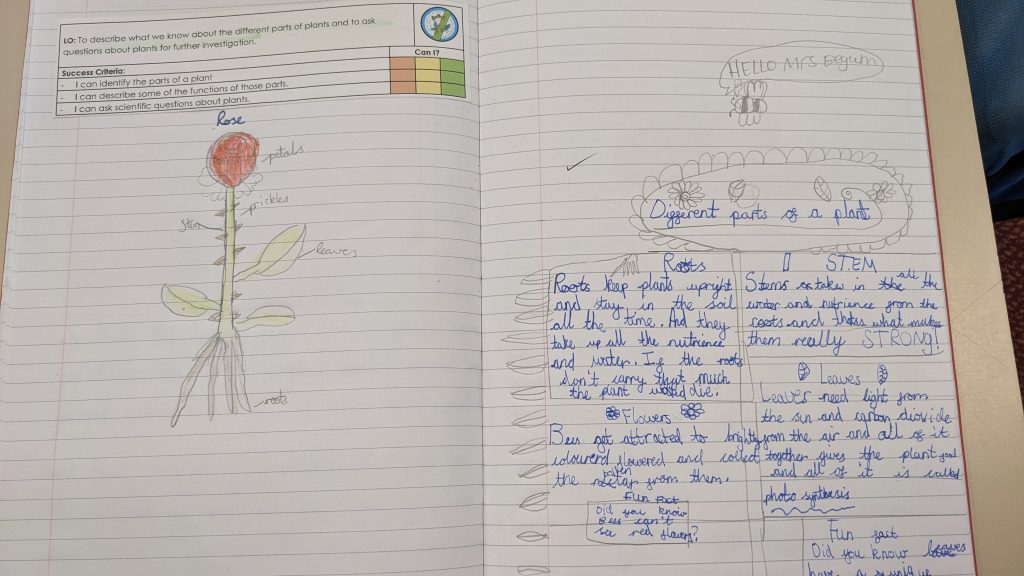 LO: To describe what we know about the different parts of plants and to ask
questions about plants for further investigation.
Can I?
Success Criteria:
- I can identify the parts of a plant
- I can describe some of the functions of those parts.
- I can ask scientific questions about plants.
Rose
petals
prickles
stem
leaves
roots
HELLO MRS Begum
Different parts of a plant
Roots
Roots keep plants upright
and stay in the soil
all the time. And they
take up all the nutrience
and water. If the roots
don't carry that much
the plant would die.
STEM
Stems take in all the
water and nutrience from the
roots and thats what makes
them really STRONG!
Leaves
Leaves need light from
the sun and carbon dioxide
from the air and all of it
together gives the plant food
and all of it is called
photo synthesis
Flowers
Bees get attracted to brighty
coloured flowered and collect
the nectar from them.
Fun Fact
Did you know
Bees can't
see red flowers?
Fun fact
Did you know leaves
have a